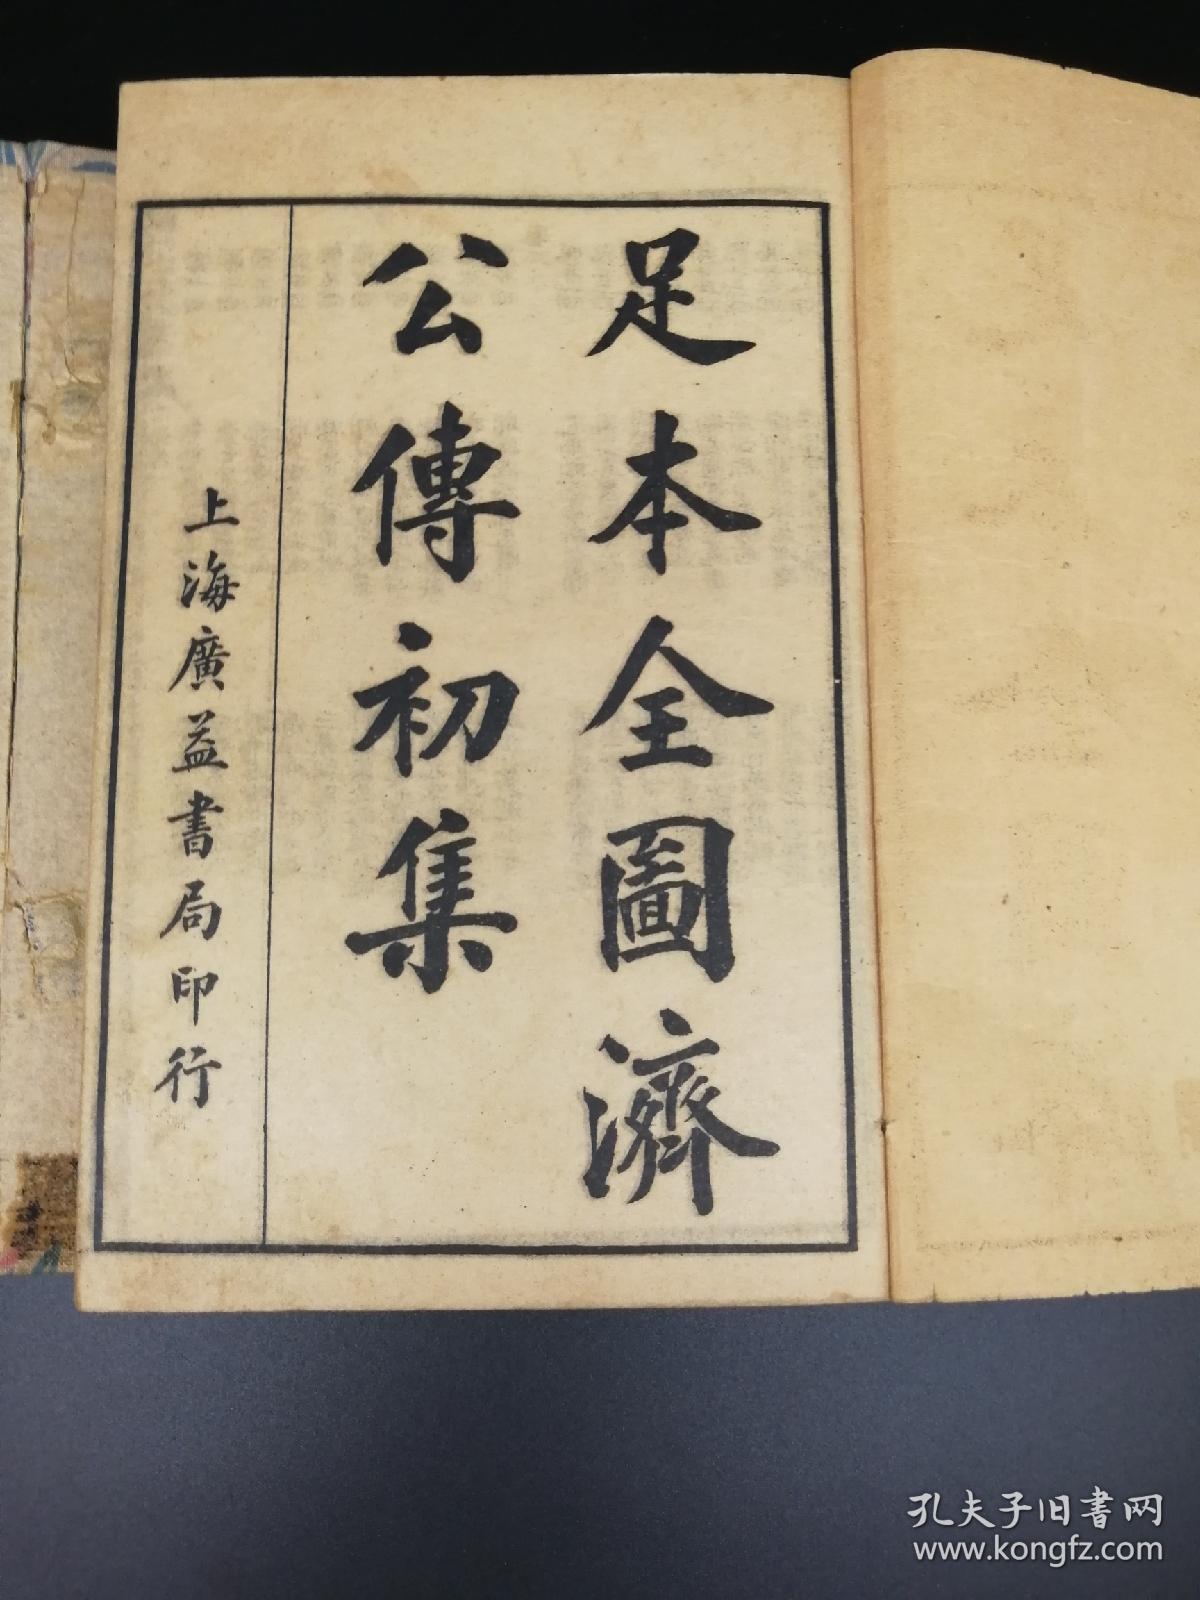 足本全圖濟
公傳初集
上海廣益書局印行
孔夫子旧书网
www.kongfz.com